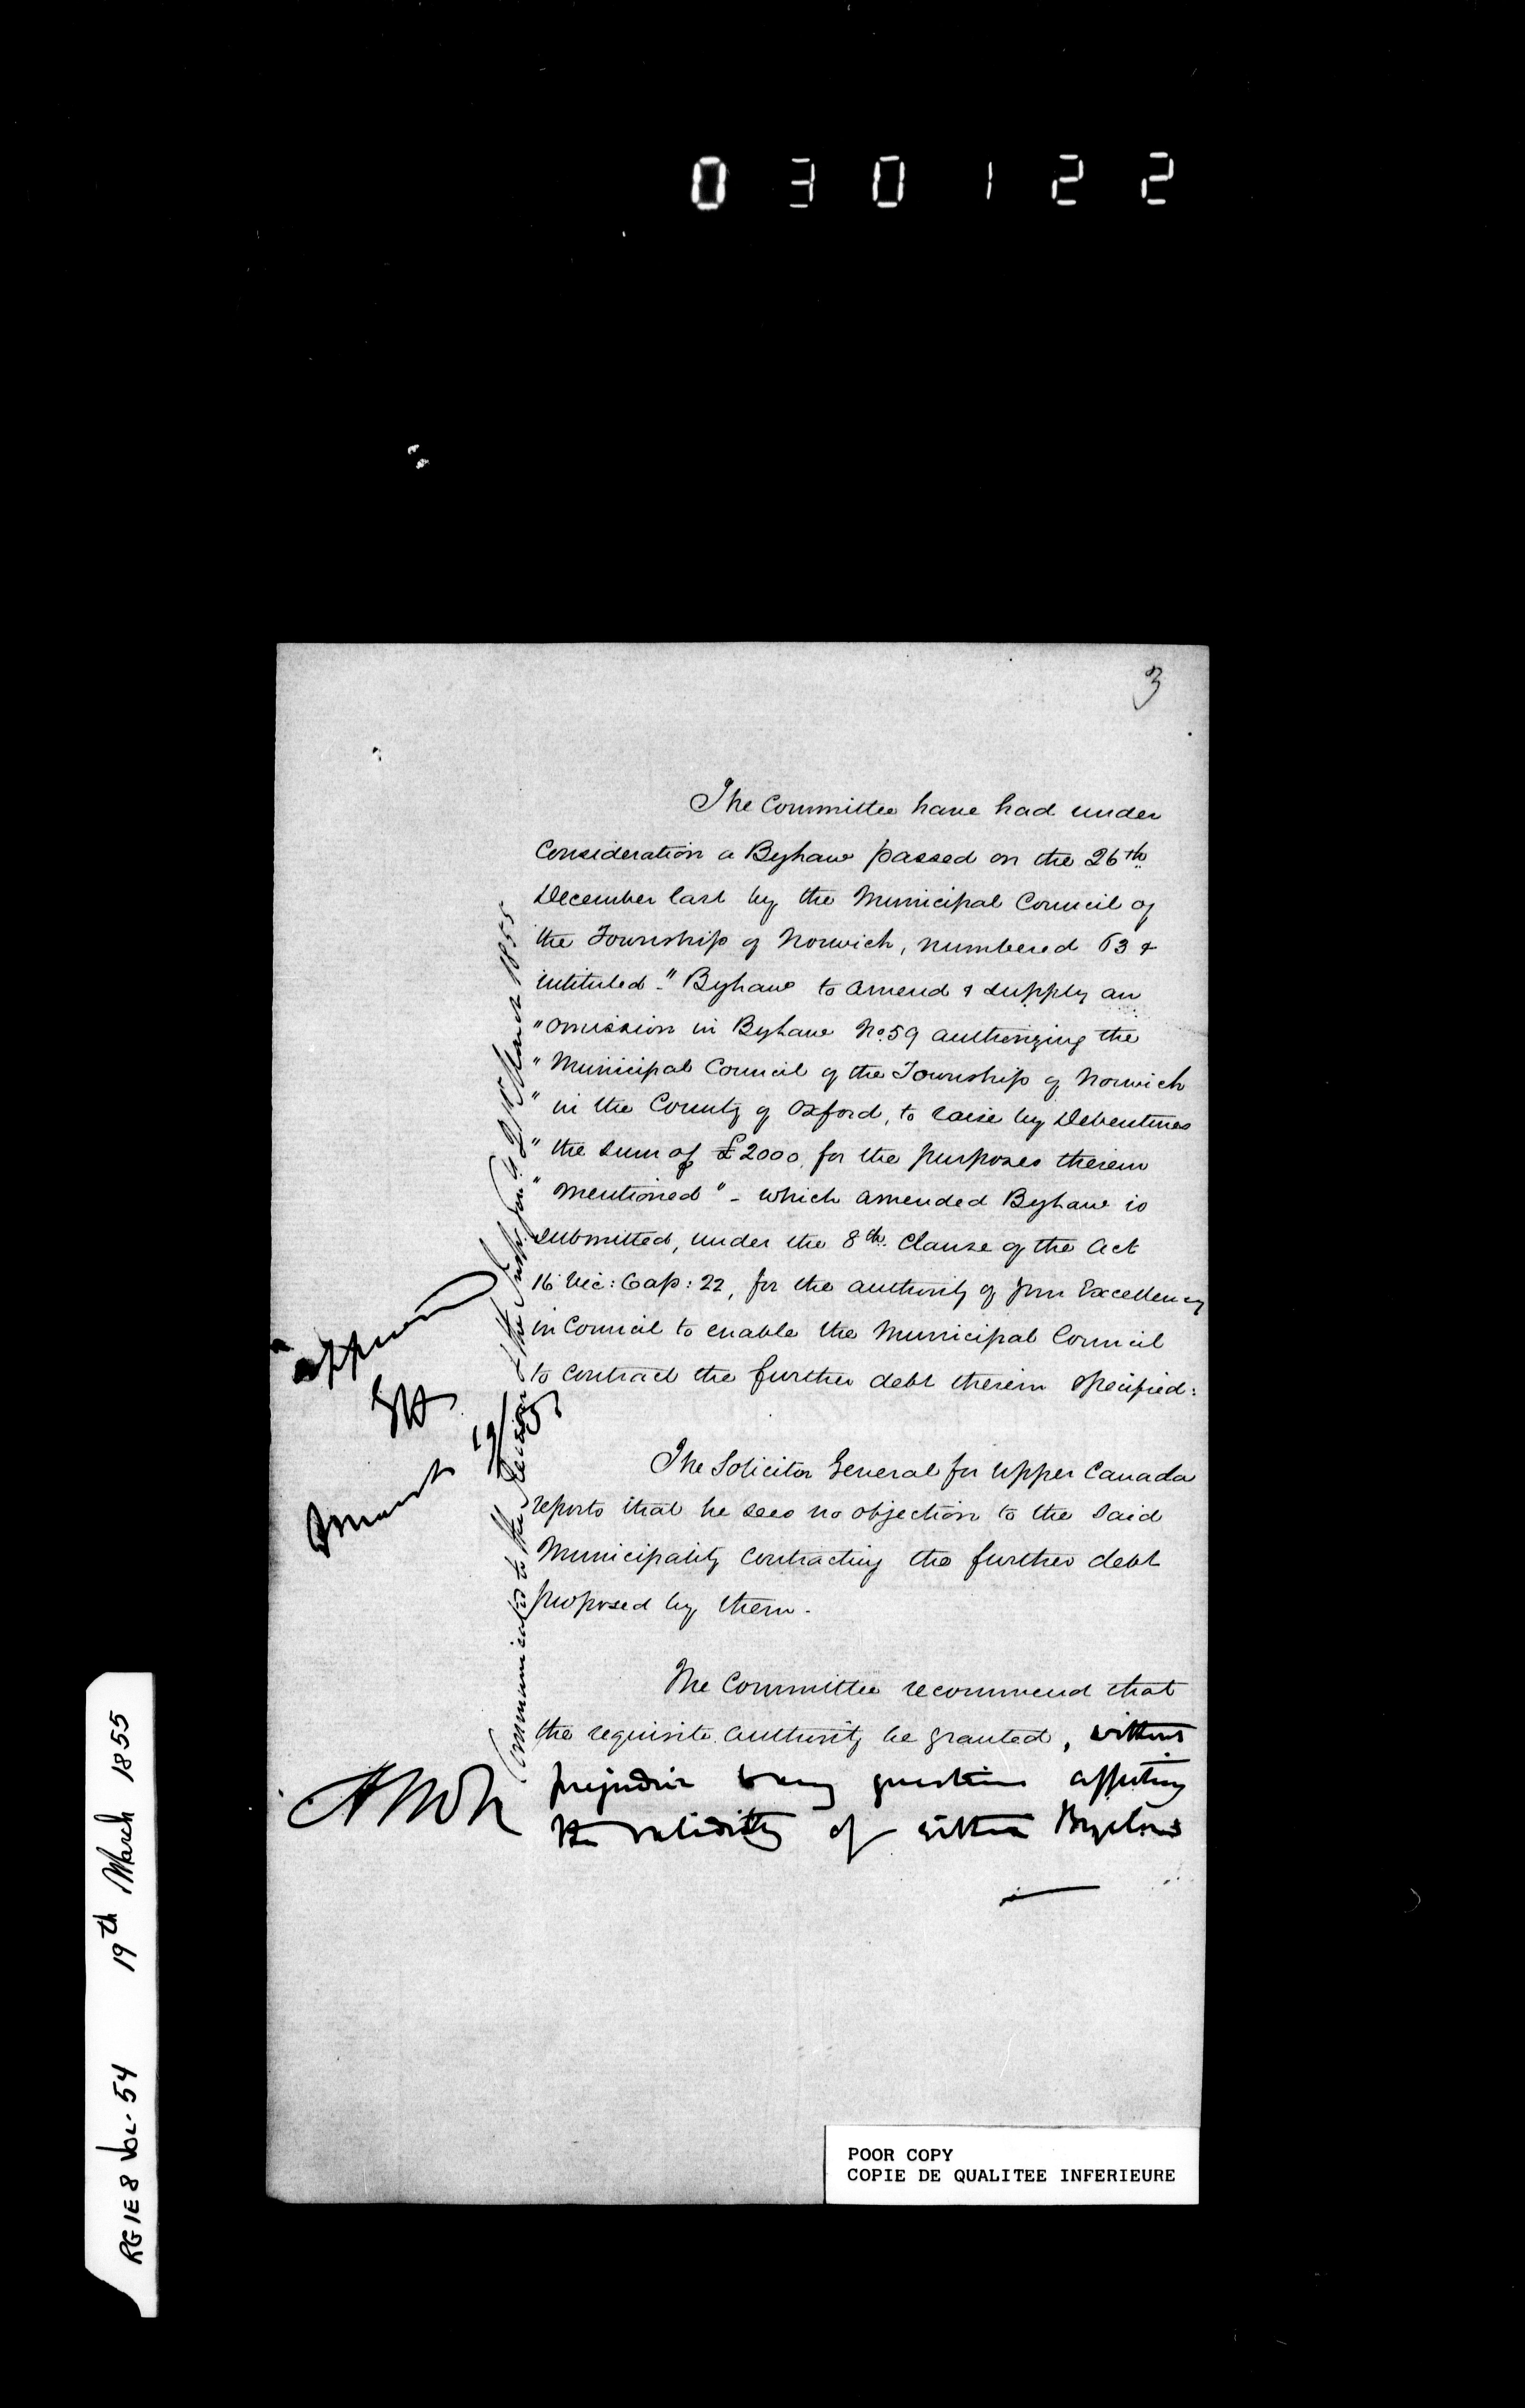 030122
3
The Committee have had under
Consideration a Bylaw passed on the 26th
December last by the Municipal Council of
the Township of Norwich, numbered 63 &
intituled - "Bylaw to amend & supply an
"omission in Bylaw No. 59 authorizing the
"Municipal Council of the Township of Norwich
"in the County of Oxford, to raise by Debentures
"the sum of £2000, for the purposes therein
"mentioned" - which amended Bylaw is
submitted, under the 8th Clause of the Act
16 Vic: Cap: 22, for the authority of Your Excellency
in Council to enable the Municipal Council
to contract the further debt therein specified:
The Solicitor General for Upper Canada
reports that he sees no objection to the said
Municipality contracting the further debt
proposed by them.
The Committee recommend that
the requisite authority be granted, without
prejudice to any question affecting
the validity of either Bylaws
Approved
March 19/55
Communicated to the & the Insp. Gen. 21st March 1855
RG1E8 VOL. 54 19th March 1855
POOR COPY
COPIE DE QUALITEE INFERIEURE